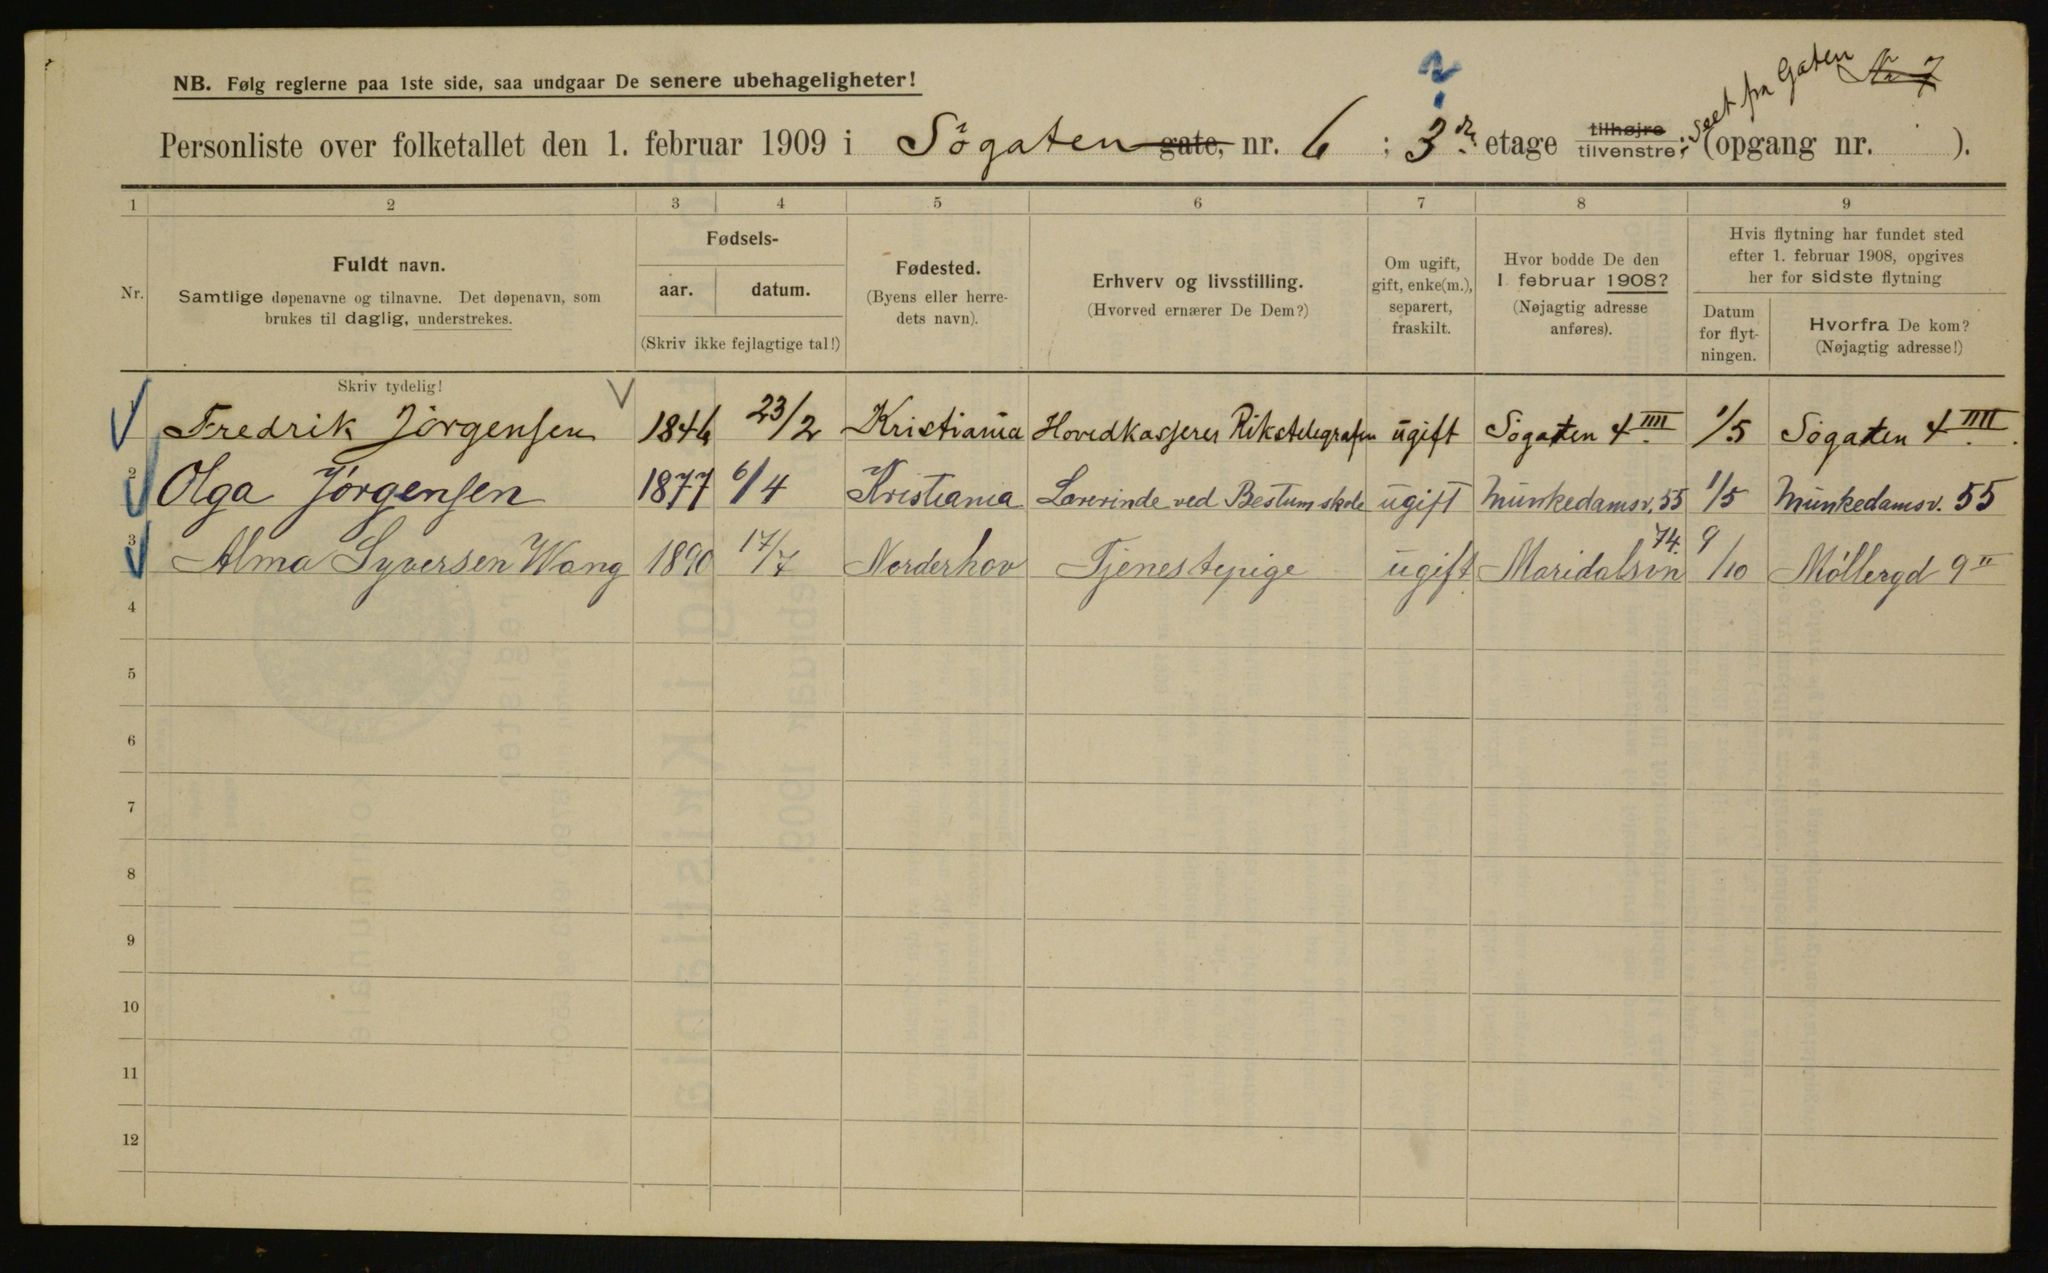 NB. Følg reglerne paa 1ste side, saa undgaar De senere ubehageligheter!
Personliste over folketallet den 1. februar 1909 i Søgaten gate, nr. 6 ; 3die etage tilhøjre tilvenstre; seet fra Gaten (opgang nr. ).
1 2 3 4 5 6 7 8 9
Nr.
Fuldt navn.
Samtlige døpenavne og tilnavne. Det døpenavn, som
brukes til daglig, understrekes.
Fødsels-
aar. datum.
(Skriv ikke fejlagtige tal!)
Fødested.
(Byens eller herre-
dets navn).
Erhverv og livsstilling.
(Hvorved ernærer De Dem?)
Om ugift,
gift, enke(m.),
separert,
fraskilt.
Hvor bodde De den
1 februar 1908?
(Nøjagtig adresse
anføres).
Hvis flytning har fundet sted
efter 1. februar 1908, opgives
her for sidste flytning
Datum
for flyt-
ningen.
Hvorfra De kom?
(Nøjagtig adresse!)
Skriv tydelig!
1 Fredrik Jörgensen 1846 23/2 Kristiania Hovedkasserer Rikstelegrafen ugift Søgaten 4 IIII 1/5 Søgaten 4 IIII
2 Olga Jørgensen 1877 6/4 Kristiania Lærerinde ved Bestum skole ugift Munkedamsv. 55 1/5 Munkedamsv. 55
3 Alma Syversen Wang 1890 17/7 Norderhov Tjenestepige ugift Maridalsvn 74. 9/10 Møllergd 9 II
4
5
6
7
8
9
10
11
12